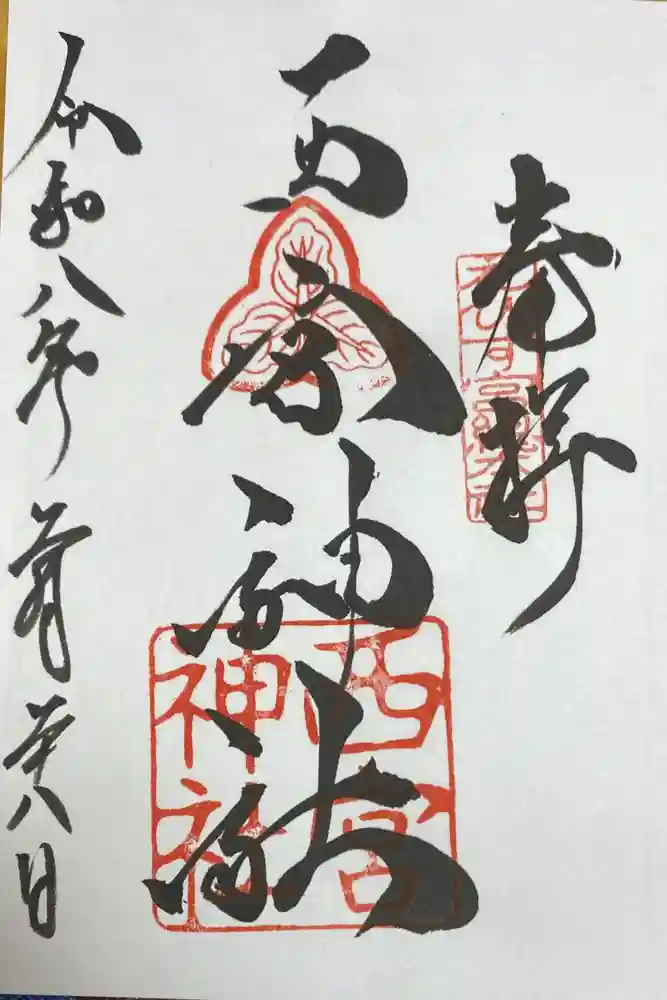 奉拝
西宮神社
西宮
神社
令和八年二月廿八日